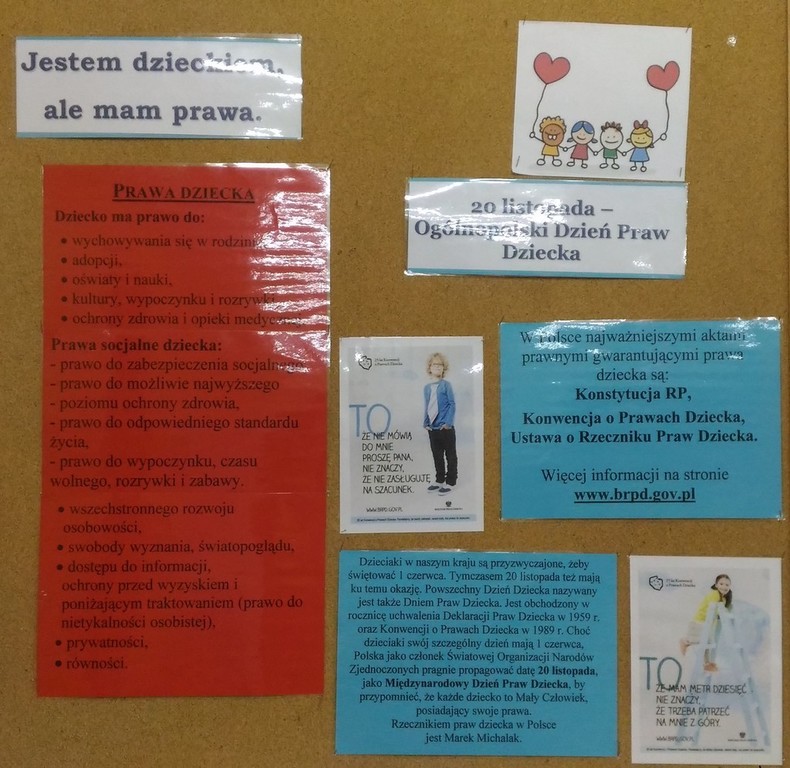 Jestem dzieckiem,
ale mam prawa.
PRAWA DZIECKA
Dziecko ma prawo do:
• wychowywania się w rodzinie
• adopcji,
• oświaty i nauki,
• kultury, wypoczynku i rozrywki,
• ochrony zdrowia i opieki medycznej,
Prawa socjalne dziecka:
- prawo do zabezpieczenia socjalnego,
- prawo do możliwie najwyższego
- poziomu ochrony zdrowia,
- prawo do odpowiedniego standardu
życia,
- prawo do wypoczynku, czasu
wolnego, rozrywki i zabawy.
• wszechstronnego rozwoju
osobowości,
• swobody wyznania, światopoglądu,
• dostępu do informacji,
ochrony przed wyzyskiem i
poniżającym traktowaniem (prawo do
nietykalności osobistej),
• prywatności,
• równości.
20 listopada –
Ogólnopolski Dzień Praw
Dziecka
W Polsce najważniejszymi aktami
prawnymi gwarantującymi prawa
dziecka są:
Konstytucja RP,
Konwencja o Prawach Dziecka,
Ustawa o Rzeczniku Praw Dziecka.
Więcej informacji na stronie
www.brpd.gov.pl
TO
ŻE NIE MÓWIĄ
DO MNIE
PROSZĘ PANA,
NIE ZNACZY,
ŻE NIE ZASŁUGUJĘ
NA SZACUNEK.
WWW.BRPD.GOV.PL
Dzieciaki w naszym kraju są przyzwyczajone, żeby
świętować 1 czerwca. Tymczasem 20 listopada też mają
ku temu okazję. Powszechny Dzień Dziecka nazywany
jest także Dniem Praw Dziecka. Jest obchodzony w
rocznicę uchwalenia Deklaracji Praw Dziecka w 1959 r.
oraz Konwencji o Prawach Dziecka w 1989 r. Choć
dzieciaki swój szczególny dzień mają 1 czerwca,
Polska jako członek Światowej Organizacji Narodów
Zjednoczonych pragnie propagować datę 20 listopada,
jako Międzynarodowy Dzień Praw Dziecka, by
przypomnieć, że każde dziecko to Mały Człowiek,
posiadający swoje prawa.
Rzecznikiem praw dziecka w Polsce
jest Marek Michalak.
TO
ŻE MAM METR DZIESIĘĆ
NIE ZNACZY,
ŻE TRZEBA PATRZEĆ
NA MNIE Z GÓRY.
WWW.BRPD.GOV.PL